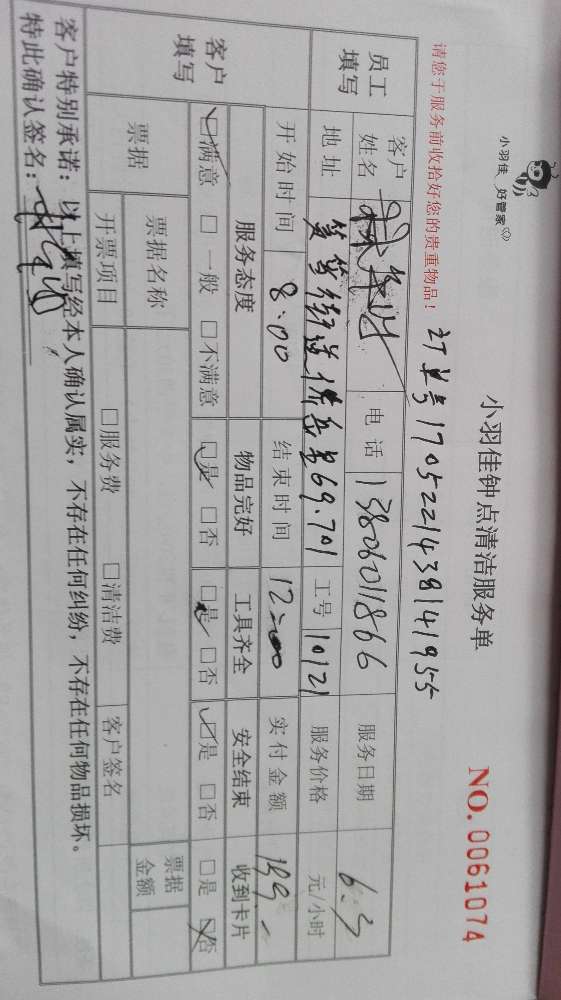 小羽佳 好管家
小羽佳钟点清洁服务单
NO. 0061074
请您于服务前收拾好您的贵重物品！ 订单号1705221438141955
员工填写 客户姓名 电话 13806011866 服务日期 6.3
地址 筼筜街道 69.701 工号 10121 服务价格 元/小时
客户填写 开始时间 8:00 结束时间 12:00 实付金额 199-
服务态度 物品完好 工具齐全 安全结束 收到卡片
☑满意 □一般 □不满意 ☑是 □否 ☑是 □否 ☑是 □否 □是 ☑否
票据 票据名称 票据金额
开票项目 □服务费 □清洁费 客户签名
客户特别承诺：以上填写经本人确认属实，不存在任何纠纷，不存在任何物品损坏。
特此确认签名：